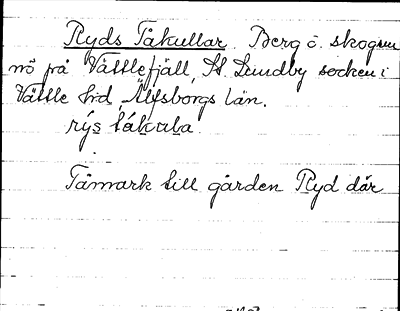 Ryds Tåkullar. Berg o. skogen
nö på Vättlefjäll, St. Lundby socken i
Vättle hd, Älfsborgs län.
rýs tåkula
Tåmark till gården Ryd där